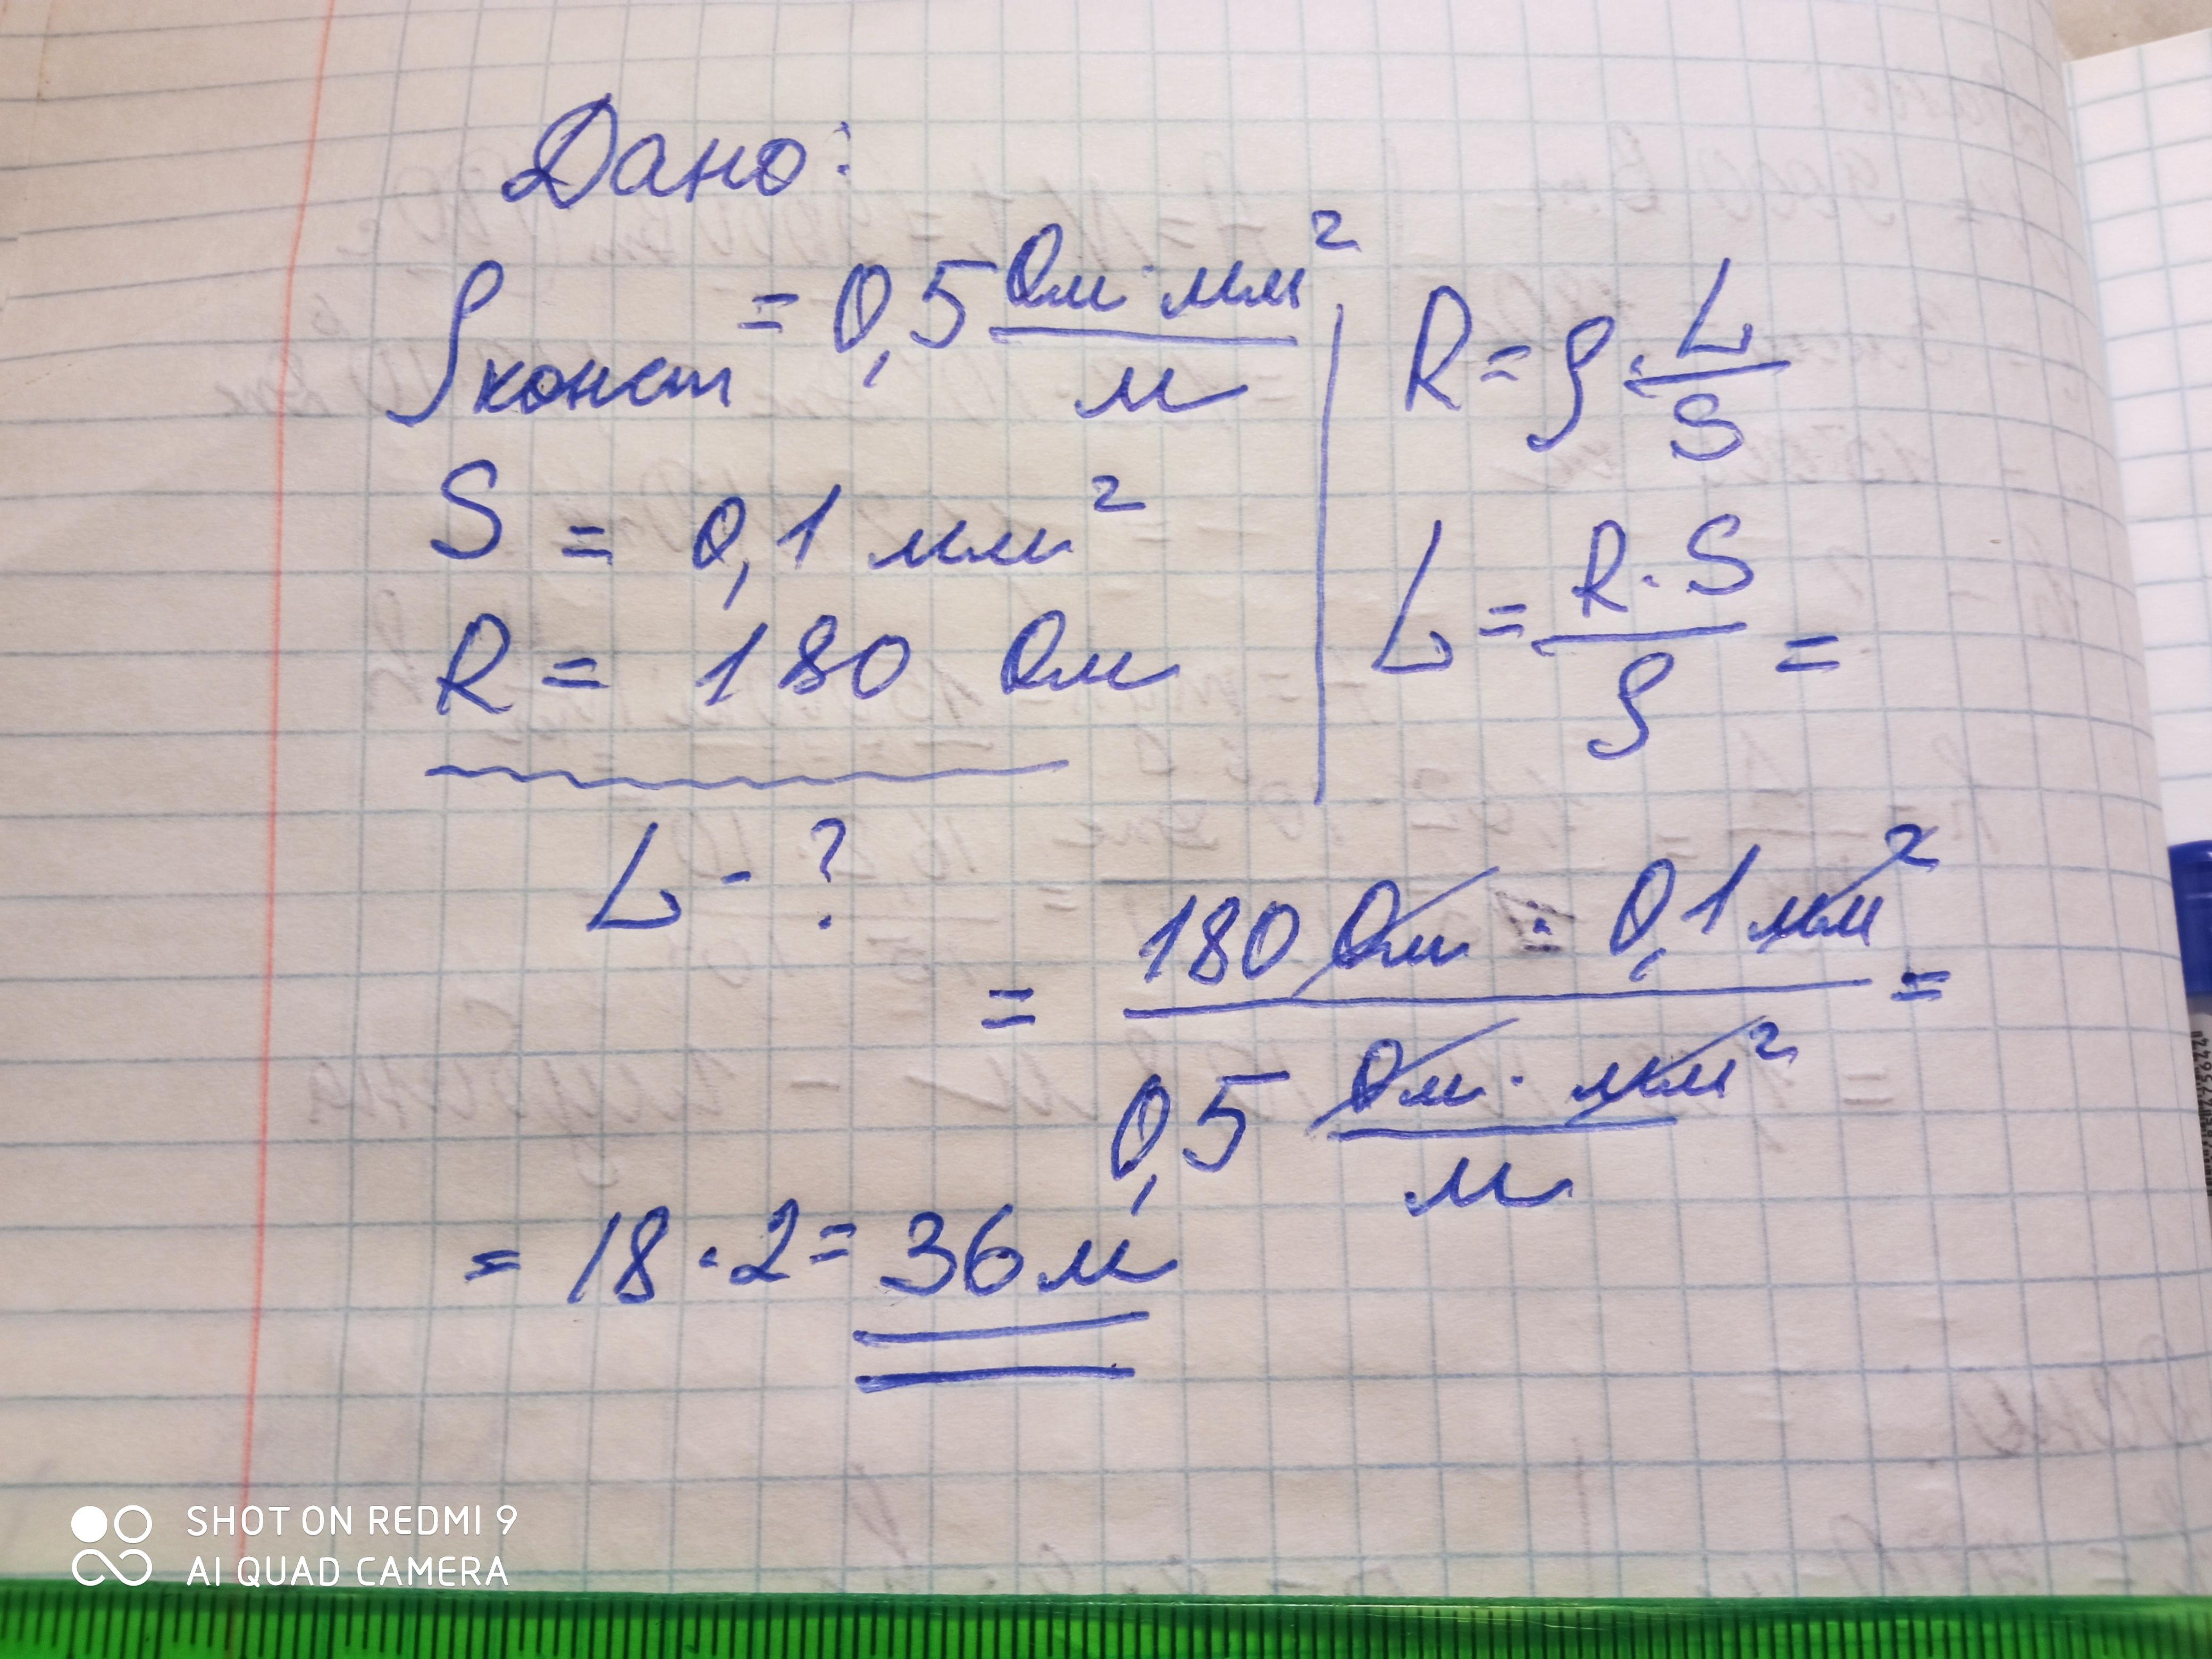 Дано:
ρконст = 0,5 Ом·мм²/м
S = 0,1 мм²
R = 180 Ом
L - ?
R = ρ · L/S
L = R·S/ρ =
= 180 Ом · 0,1 мм² / 0,5 Ом·мм²/м =
= 18 · 2 = 36 м
SHOT ON REDMI 9
AI QUAD CAMERA